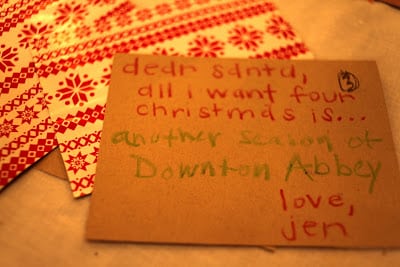 dear santa,
all i want four
christmas is...
another season of
Downton Abbey
love,
jen
3